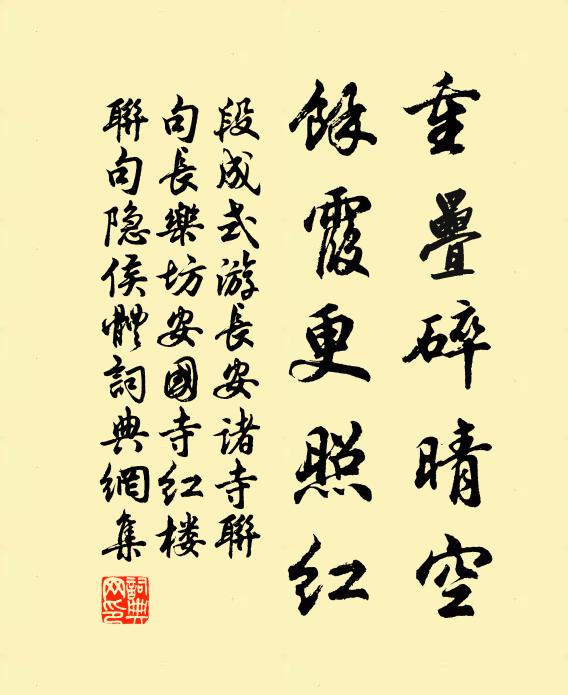 重疊碎晴空
餘霞更照紅
段成式游長安諸寺聯
句長樂坊安國寺红楼
聯句隐侯體詞典網集
詞典
网印